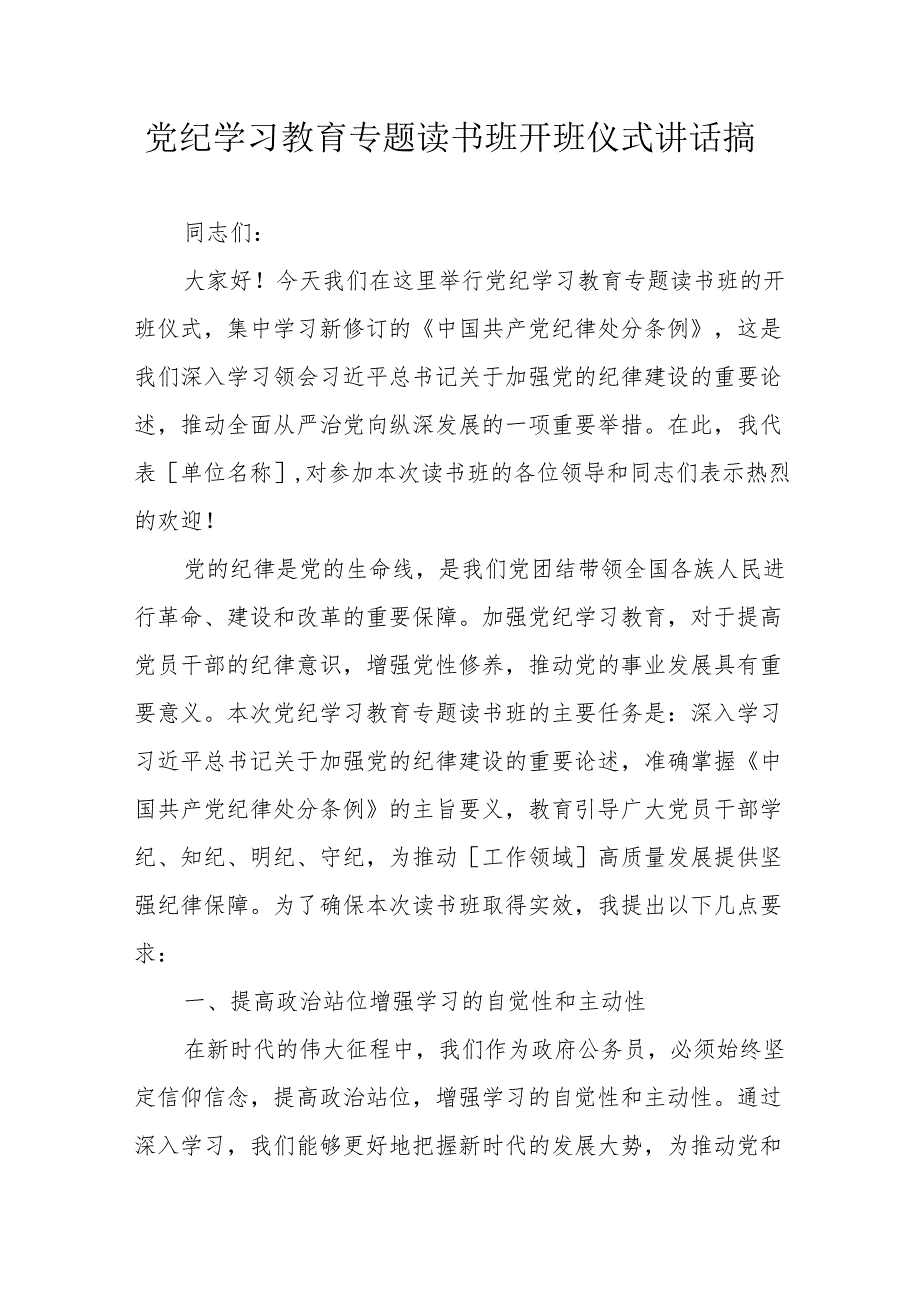 党纪学习教育专题读书班开班仪式讲话搞
同志们：
大家好！今天我们在这里举行党纪学习教育专题读书班的开
班仪式，集中学习新修订的《中国共产党纪律处分条例》，这是
我们深入学习领会习近平总书记关于加强党的纪律建设的重要论
述，推动全面从严治党向纵深发展的一项重要举措。在此，我代
表［单位名称］,对参加本次读书班的各位领导和同志们表示热烈
的欢迎！
党的纪律是党的生命线，是我们党团结带领全国各族人民进
行革命、建设和改革的重要保障。加强党纪学习教育，对于提高
党员干部的纪律意识，增强党性修养，推动党的事业发展具有重
要意义。本次党纪学习教育专题读书班的主要任务是：深入学习
习近平总书记关于加强党的纪律建设的重要论述，准确掌握《中
国共产党纪律处分条例》的主旨要义，教育引导广大党员干部学
纪、知纪、明纪、守纪，为推动［工作领域］高质量发展提供坚
强纪律保障。为了确保本次读书班取得实效，我提出以下几点要
求：
一、提高政治站位增强学习的自觉性和主动性
在新时代的伟大征程中，我们作为政府公务员，必须始终坚
定信仰信念，提高政治站位，增强学习的自觉性和主动性。通过
深入学习，我们能够更好地把握新时代的发展大势，为推动党和